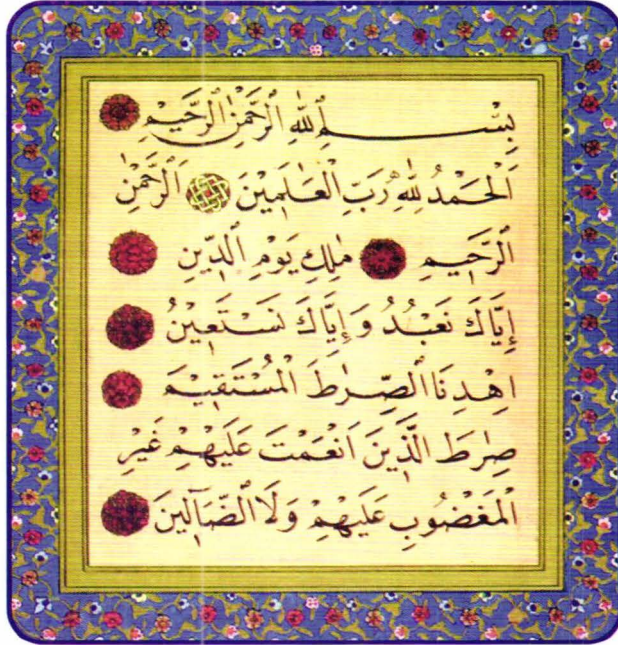 بِسْمِ ٱللّٰهِ ٱلرَّحْمٰنِ ٱلرَّحِيْمِ
اَلْحَمْدُ لِلّٰهِ رَبِّ الْعَالَمِيْنَ اَلرَّحْمٰنِ
الرَّحِيْمِ مٰلِكِ يَوْمِ الدِّيْنِ
اِيَّاكَ نَعْبُدُ وَاِيَّاكَ نَسْتَعِيْنُ
اِهْدِنَا الصِّرٰطَ الْمُسْتَقِيْمَ
صِرٰطَ الَّذِيْنَ اَنْعَمْتَ عَلَيْهِمْ غَيْرِ
الْمَغْضُوْبِ عَلَيْهِمْ وَلَا الضَّآلِّيْنَ